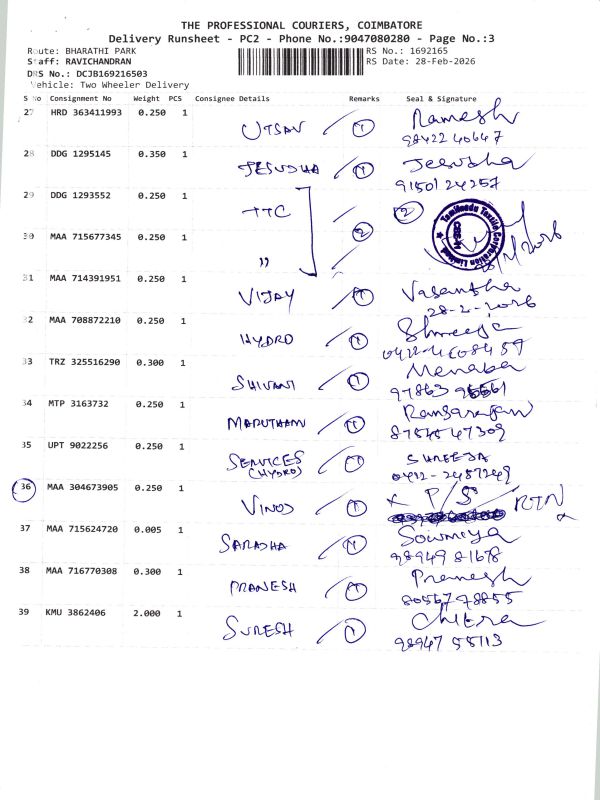 THE PROFESSIONAL COURIERS, COIMBATORE
Delivery Runsheet - PC2 - Phone No.:9047080280 - Page No.:3
Route: BHARATHI PARK RS No.: 1692165
Staff: RAVICHANDRAN RS Date: 28-Feb-2026
DRS No.: DCJB169216503
Vehicle: Two Wheeler Delivery
S No Consignment No Weight PCS Consignee Details Remarks Seal & Signature
27 HRD 363411993 0.250 1 UTSAV 1 Ramesh
98422 40647
28 DDG 1295145 0.350 1 JESUDHA 1 Jesudha
91501 24257
29 DDG 1293552 0.250 1 TTC 2 2
Tamilnadu Textile Corporation Limited
30 MAA 715677345 0.250 1 "
31 MAA 714391951 0.250 1 VIJAY 1 Vasantha
28-2-2026
32 MAA 708872210 0.250 1 HYDRO 1 Shreeja
33 TRZ 325516290 0.300 1 SHIVANI 1 Menaka
34 MTP 3163732 0.250 1 MARUTHAM 1
35 UPT 9022256 0.250 1 SERVICES 1 SHREEJA
(HYDRO) 0422-2457249
36 MAA 304673905 0.250 1 VINOD 1 P/S RTN
37 MAA 715624720 0.005 1 SARADHA 1 Sowmiya
98949 81678
38 MAA 716770308 0.300 1 PRANESH 1 Pramesh
80567 78855
39 KMU 3862406 2.000 1 SURESH 1 Chitra
98947 55113